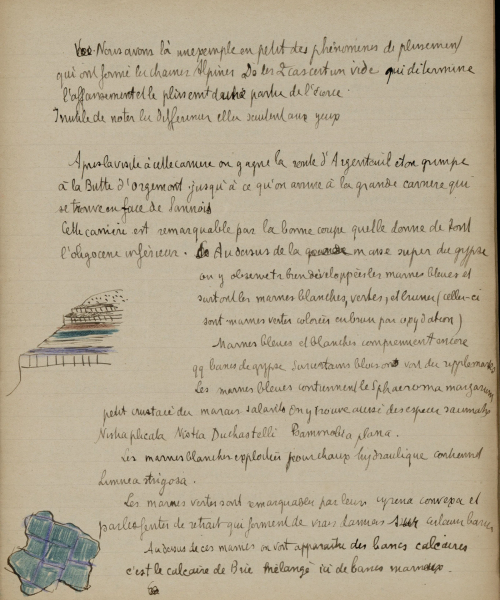 Nous avons là un exemple en petit des phénomènes de plissement
qui ont formé les chaines Alpines Ds les 2 cas c'est un vide qui détermine
l'affaissement et le plissemt d'une partie de l'Écorce.
Inutile de noter les différences elles sautent aux yeux
Après la visite à cette carrière on gagne la route d'Argenteuil et on grimpe
à la Butte d'Orgemont jusqu'à ce qu'on arrive à la grande carrière qui
se trouve en face de Sannois
Cette carrière est remarquable par la bonne coupe quelle donne de tout
l'oligocene inférieur. Au dessus de la masse super du gypse
on y observe très bien développées les marnes bleues et
surtout les marnes blanches, vertes, et brunes (celles-ci
sont marnes vertes colorées en brun par oxydation)
Marnes bleues et blanches comprennent encore
qq bancs de gypse sur certains blocs on voit du ripplemarks
Les marnes bleues contiennent le Sphaeroma margarum
petit crustacé des marais salants On y trouve aussi des espèces saumatres
Nistia plicata Nistia Duchastelli Psammobia plana.
Les marnes blanches exploitées pour chaux hydraulique contiennent
Limnea strigosa.
Les marnes vertes sont remarquables par leurs cyrena convexa et
par les fentes de retrait qui forment de vrais damiers sur certains bancs
Au dessus de ces marnes on voit apparaitre des bancs calcaires
c'est le calcaire de Brie mélangé ici de bancs marneux.